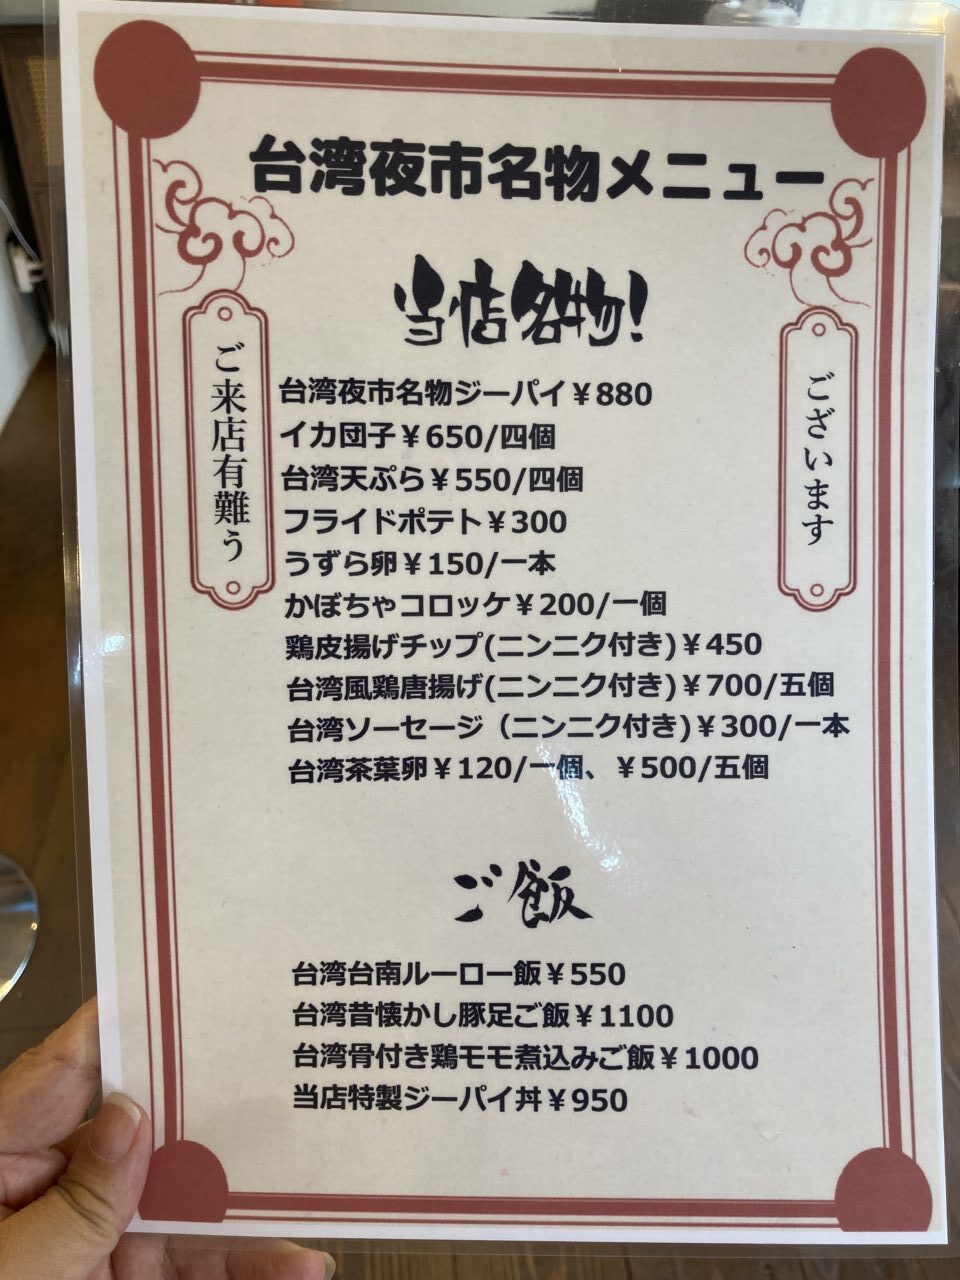 台湾夜市名物メニュー
当店名物!
ご来店有難う
ございます
台湾夜市名物ジーパイ¥880
イカ団子¥650/四個
台湾天ぷら¥550/四個
フライドポテト¥300
うずら卵¥150/一本
かぼちゃコロッケ¥200/一個
鶏皮揚げチップ(ニンニク付き)¥450
台湾風鶏唐揚げ(ニンニク付き)¥700/五個
台湾ソーセージ（ニンニク付き)¥300/一本
台湾茶葉卵¥120/一個、¥500/五個
ご飯
台湾台南ルーロー飯¥550
台湾昔懐かし豚足ご飯¥1100
台湾骨付き鶏モモ煮込みご飯¥1000
当店特製ジーパイ丼¥950